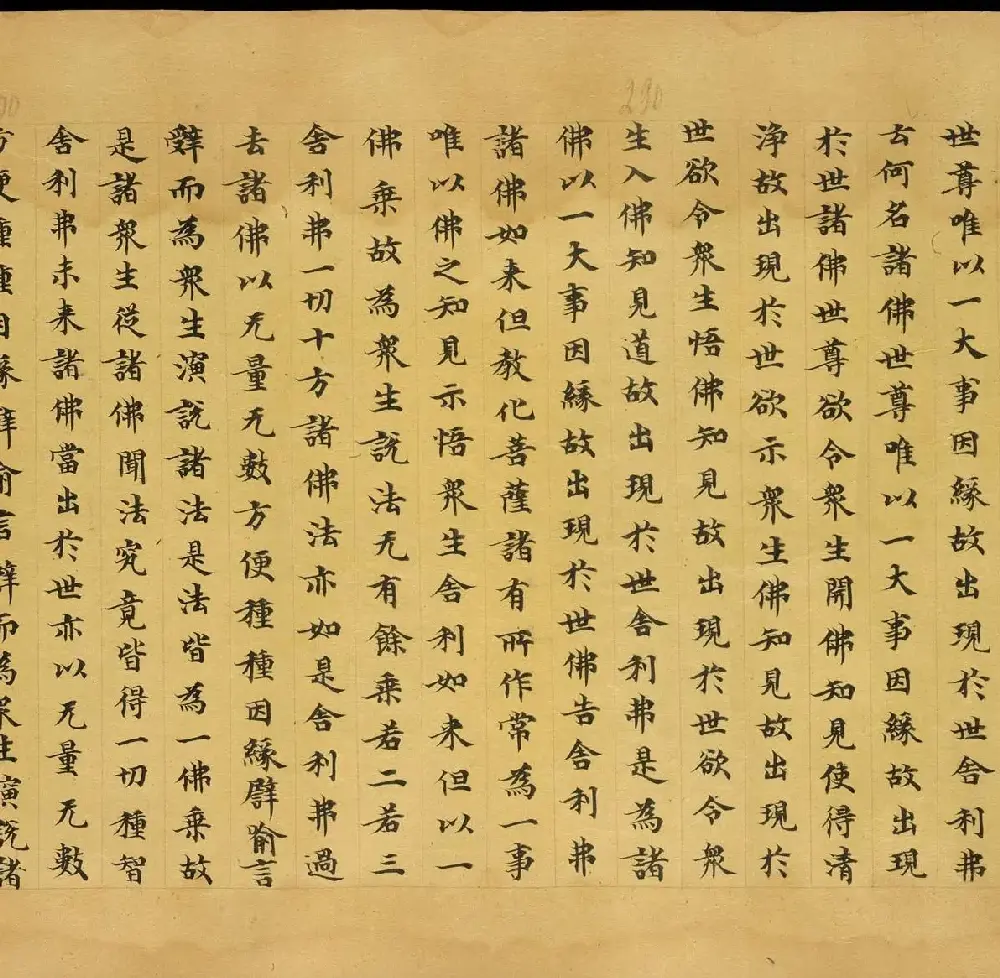 290
世尊唯以一大事因緣故出現於世舍利弗
云何名諸佛世尊唯以一大事因緣故出現
於世諸佛世尊欲令衆生開佛知見使得清
淨故出現於世欲示衆生佛知見故出現於
世欲令衆生悟佛知見故出現於世欲令衆
生入佛知見道故出現於世舍利弗是為諸
佛以一大事因緣故出現於世佛告舍利弗
諸佛如来但教化菩薩諸有所作常為一事
唯以佛之知見示悟衆生舍利如来但以一
佛乗故為衆生説法无有餘乗若二若三
舍利弗一切十方諸佛法亦如是舍利弗過
去諸佛以无量无數方便種種因緣譬喻言
辭而為衆生演説諸法是法皆為一佛乗故
是諸衆生從諸佛聞法究竟皆得一切種智
舍利弗未来諸佛當出於世亦以无量无數
方便種種因緣譬喻言辭而為衆生演説諸